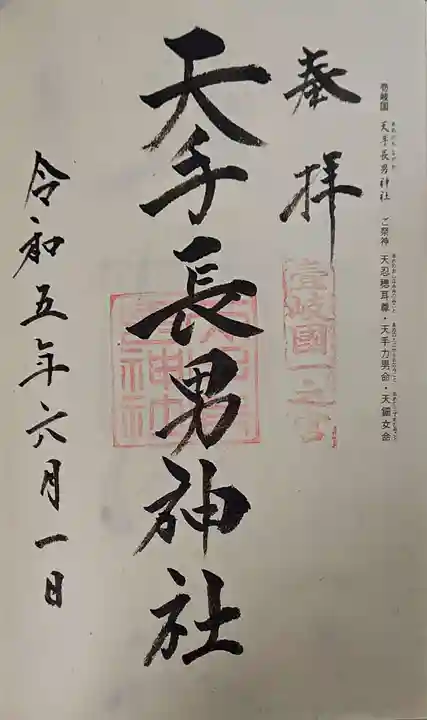 壱岐国 天手長男神社 ご祭神 天忍穂耳尊・天手力男命・天鈿女命
奉拝
壹岐國一之宮
天手長男神社
令和五年六月一日